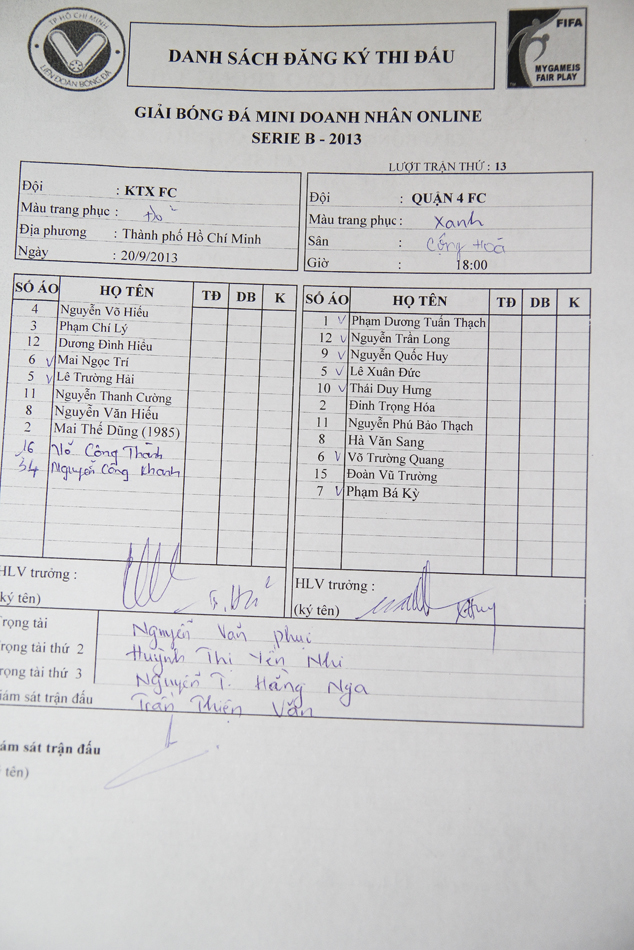 TP HỒ CHÍ MINH
LIÊN ĐOÀN BÓNG ĐÁ
DANH SÁCH ĐĂNG KÝ THI ĐẤU
FIFA
MY GAME IS
FAIR PLAY
GIẢI BÓNG ĐÁ MINI DOANH NHÂN ONLINE
SERIE B - 2013
LƯỢT TRẬN THỨ : 13
Đội : KTX FC
Màu trang phục : Đỏ
Địa phương : Thành phố Hồ Chí Minh
Ngày : 20/9/2013
Đội : QUẬN 4 FC
Màu trang phục : Xanh
Sân : Cộng Hoà
Giờ : 18:00
SỐ ÁO HỌ TÊN TĐ DB K
4 Nguyễn Võ Hiếu
3 Phạm Chí Lý
12 Dương Đình Hiều
6 v Mai Ngọc Trí
5 v Lê Trường Hải
11 Nguyễn Thanh Cường
8 Nguyễn Văn Hiếu
2 Mai Thế Dũng (1985)
16 Võ Công Thành
34 Nguyễn Công Khanh
SỐ ÁO HỌ TÊN TĐ DB K
1 v Phạm Dương Tuấn Thạch
12 v Nguyễn Trần Long
9 v Nguyễn Quốc Huy
5 v Lê Xuân Đức
10 v Thái Duy Hưng
2 Đinh Trọng Hóa
11 Nguyễn Phú Bảo Thạch
8 Hà Văn Sang
6 v Võ Trường Quang
15 Đoàn Vũ Trường
7 v Phạm Bá Kỳ
HLV trưởng :
(ký tên)
HLV trưởng :
(ký tên)
Huy
rọng tài Nguyễn Văn Phục
rọng tài thứ 2 Huỳnh Thi Yến Nhi
rọng tài thứ 3 Nguyễn T. Hằng Nga
iám sát trận đấu Trần Thiện Văn
ám sát trận đấu
tên)